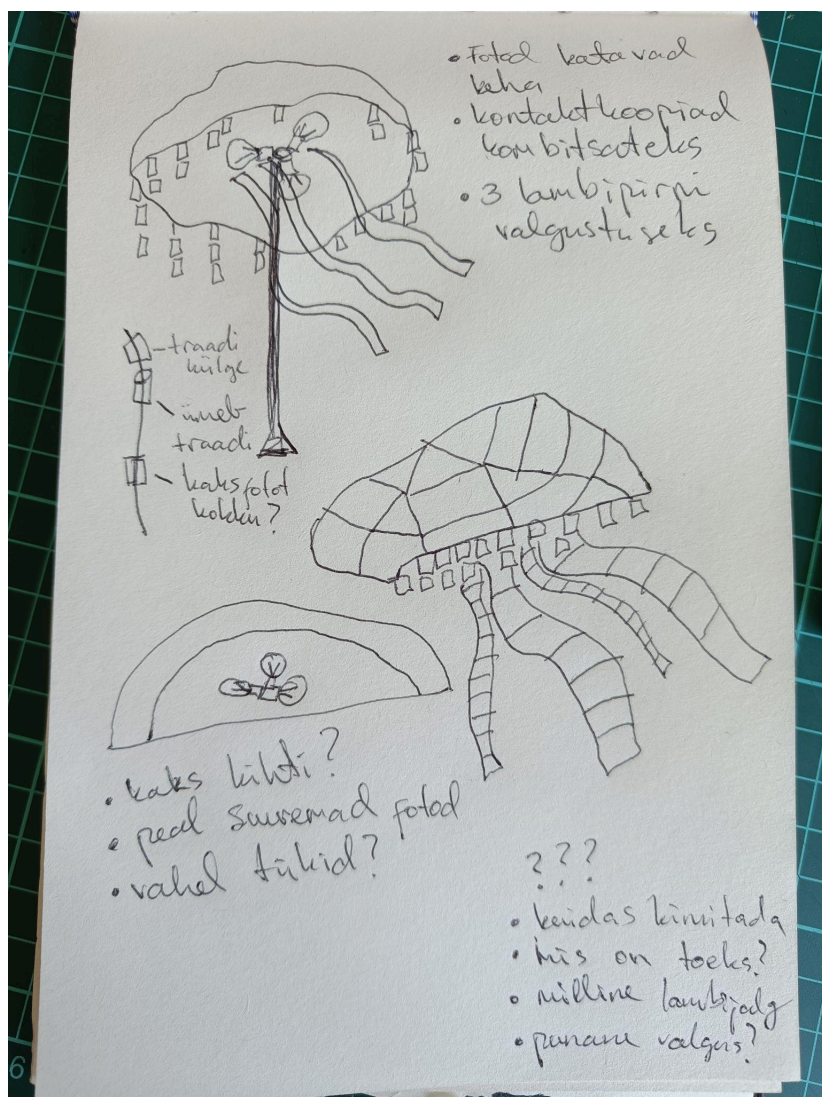 • Fotod katavad
keha
• kontaktkoopiad
kombitsateks
• 3 lambipirni
valgustuseks
traadi
külge
ümber
traadi
kaks fotot
kokku?
• kaks kihti?
• peal suuremad fotod
• vahel tükid?
???
• kuidas kinnitada
• mis on toeks?
• milline lambijalg
• punane valgus?
6